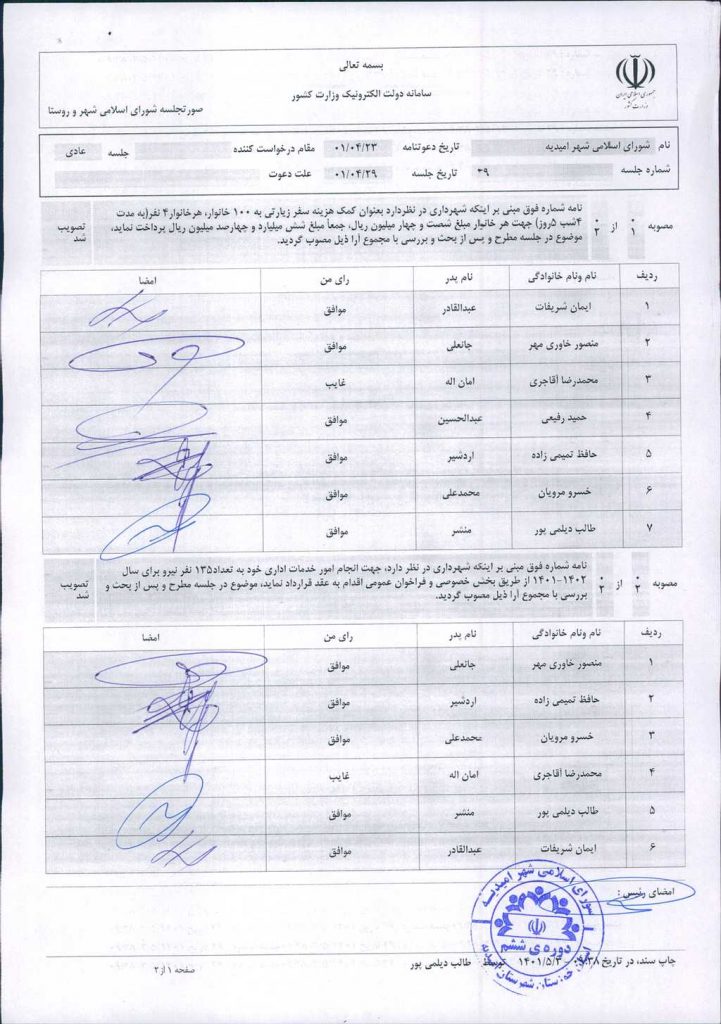 بسمه تعالی
سامانه دولت الکترونیک وزارت کشور
صورتجلسه شورای اسلامی شهر و روستا
جمهوری اسلامی ایران
وزارت کشور
نام شورای اسلامی شهر امیدیه تاریخ دعوتنامه ۰۱/۰۴/۲۳ مقام درخواست کننده جلسه عادی
شماره جلسه ۳۹ تاریخ جلسه ۰۱/۰۴/۲۹ علت دعوت
مصوبه ۰۱ از ۰۲
نامه شماره فوق مبنی بر اینکه شهرداری در نظردارد بعنوان کمک هزینه سفر زیارتی به ۱۰۰ خانوار، هرخانوار۴ نفر(به مدت
۴شب ۵روز) جهت هر خانوار مبلغ شصت و چهار میلیون ریال، جمعاً مبلغ شش میلیارد و چهارصد میلیون ریال پرداخت نماید،
موضوع در جلسه مطرح و پس از بحث و بررسی با مجموع آرا ذیل مصوب گردید.
تصویب شد
ردیف نام ونام خانوادگی نام پدر رای من امضا
۱ ایمان شریفات عبدالقادر موافق
۲ منصور خاوری مهر جانعلی موافق
۳ محمدرضا آقاجری امان اله غایب
۴ حمید رفیعی عبدالحسین موافق
۵ حافظ تمیمی زاده اردشیر موافق
۶ خسرو مرویان محمدعلی موافق
۷ طالب دیلمی پور منشر موافق
مصوبه ۰۲ از ۰۲
نامه شماره فوق مبنی بر اینکه شهرداری در نظر دارد، جهت انجام امور خدمات اداری خود به تعداد۱۳۵ نفر نیرو برای سال
۱۴۰۲-۱۴۰۱ از طریق بخش خصوصی و فراخوان عمومی اقدام به عقد قرارداد نماید، موضوع در جلسه مطرح و پس از بحث و
بررسی با مجموع آرا ذیل مصوب گردید.
تصویب شد
ردیف نام ونام خانوادگی نام پدر رای من امضا
۱ منصور خاوری مهر جانعلی موافق
۲ حافظ تمیمی زاده اردشیر موافق
۳ خسرو مرویان محمدعلی موافق
۴ محمدرضا آقاجری امان اله غایب
۵ طالب دیلمی پور منشر موافق
۶ ایمان شریفات عبدالقادر موافق
امضای رئیس :
شورای اسلامی شهر امیدیه
دوره ی ششم
استان خوزستان شهرستان امیدیه
چاپ سند، در تاریخ ۰۹:۳۸ - ۱۴۰۱/۵/۳ توسط طالب دیلمی پور
صفحه ۱ از ۲